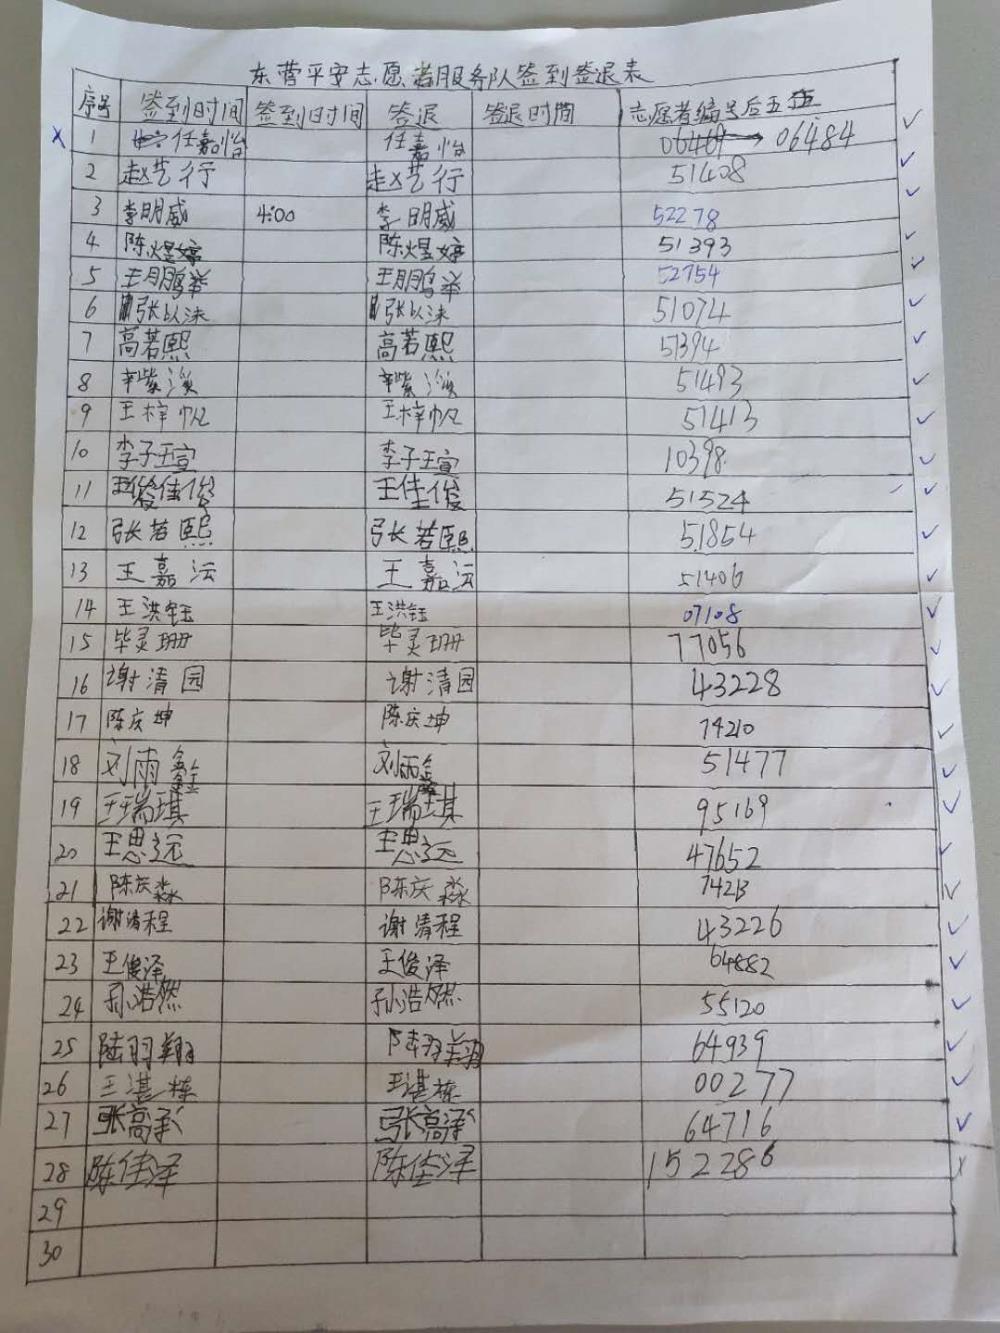 东营平安志愿者服务队签到签退表
序号 签到时间 签到时间 签退 签退时间 志愿者编号后五位
1 任嘉怡 任嘉怡 06484
2 赵艺行 赵艺行 51408
3 李明威 4:00 李明威 52278
4 陈煜婷 陈煜婷 51393
5 王鹏举 王鹏举 52754
6 张以沫 张以沫 51074
7 高若熙 高若熙 51394
8 辛紫溪 辛紫溪 51493
9 王梓帆 王梓帆 51413
10 李子宣 李子宣 10398
11 王佳俊 王佳俊 51524
12 张若熙 张若熙 51854
13 王嘉沄 王嘉沄 51406
14 王洪钰 王洪钰 07108
15 毕灵珊 毕灵珊 77056
16 谢清园 谢清园 43228
17 陈庆坤 陈庆坤 74210
18 刘雨鑫 刘雨鑫 51477
19 王瑞琪 王瑞琪 95169
20 王思远 王思远 47652
21 陈庆淼 陈庆淼 74213
22 谢清程 谢清程 43226
23 王俊泽 王俊泽 64882
24 孙浩然 孙浩然 55120
25 陆羽翔 陆羽翔 64939
26 王湛栋 王湛栋 00277
27 张高承 张高承 64716
28 陈佳泽 陈佳泽 152286
29
30